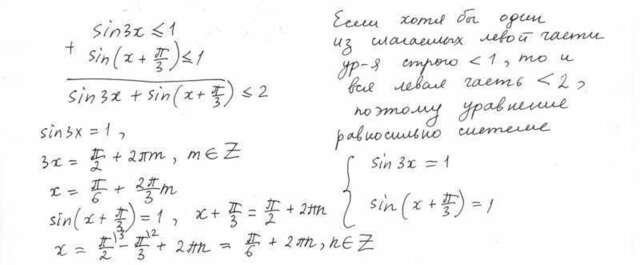 sin3x ≤ 1
+ sin(x + π/3) ≤ 1
sin3x + sin(x + π/3) ≤ 2
sin3x = 1,
3x = π/2 + 2πm, m ∈ Z
x = π/6 + 2π/3 m
sin(x + π/3) = 1, x + π/3 = π/2 + 2πn
x = π/2 \3 - π/3 \2 + 2πn = π/6 + 2πn, n ∈ Z
Если хотя бы один
из слагаемых левой части
ур-я строго < 1, то и
вся левая часть < 2,
поэтому уравнение
равносильно системе
{ sin3x = 1
sin(x + π/3) = 1